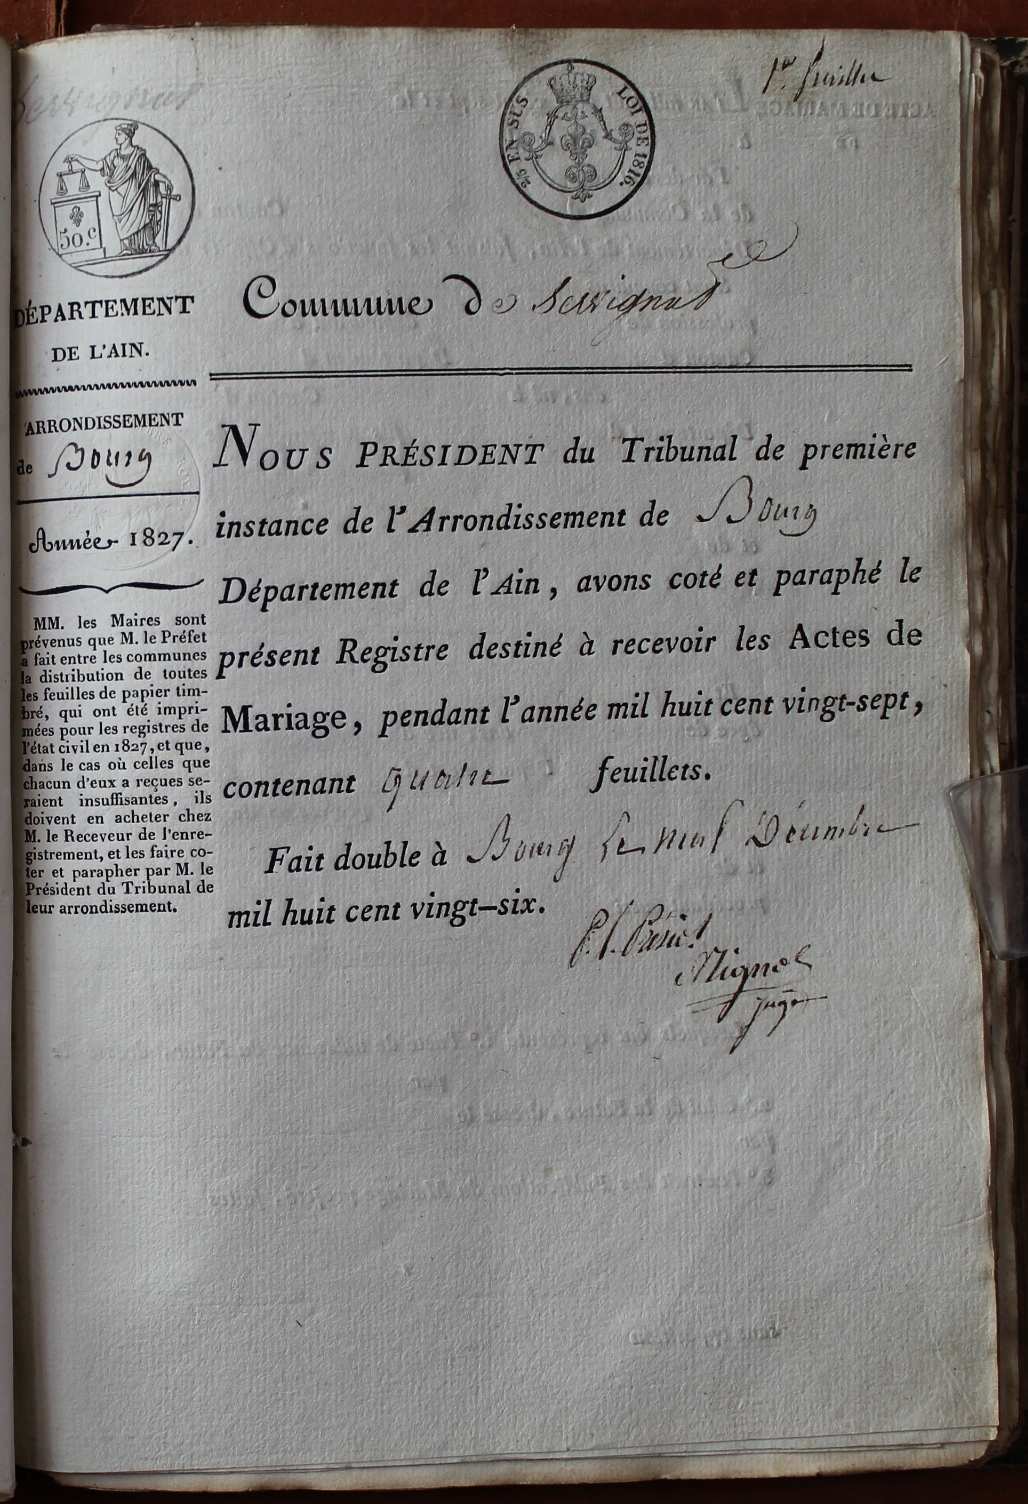 1er feuillet
2/5 EN SUS
LOI DE 1816.
50.c
Servignat
DÉPARTEMENT
DE L'AIN.
ARRONDISSEMENT
de Bourg
Année 1827.
MM. les Maires sont
prévenus que M. le Préfet
a fait entre les communes
la distribution de toutes
les feuilles de papier tim-
bré, qui ont été impri-
mées pour les registres de
l'état civil en 1827, et que,
dans le cas où celles que
chacun d'eux a reçues se-
raient insuffisantes, ils
doivent en acheter chez
M. le Receveur de l'enre-
gistrement, et les faire co-
ter et parapher par M. le
Président du Tribunal de
leur arrondissement.
Commune de Servignat
NOUS PRÉSIDENT du Tribunal de première
instance de l'Arrondissement de Bourg
Département de l'Ain, avons coté et paraphé le
présent Registre destiné à recevoir les Actes de
Mariage, pendant l'année mil huit cent vingt-sept,
contenant quatre feuillets.
Fait double à Bourg le neuf Décembre
mil huit cent vingt-six.
P. l. Présidt
juge